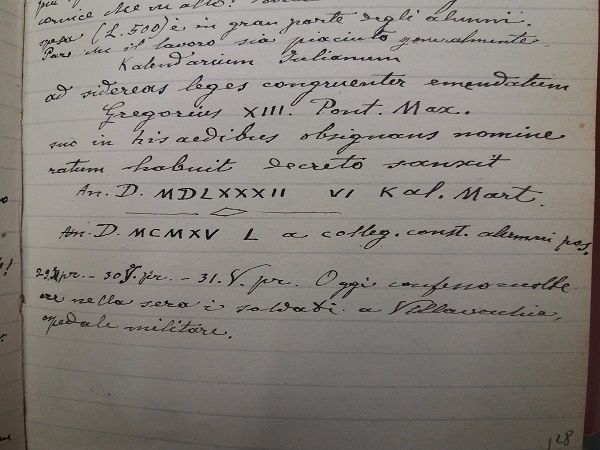 cornice che in alto!
spesa (L. 500) è in gran parte degli alunni.
Pare che il lavoro sia piaciuto generalmente.
Kalendarium Iulianum
ad sidereas leges congruenter emendatum
Gregorius XIII. Pont. Max.
suo in his aedibus obsignans nomine
ratum habuit decreto sanxit
An. D. MDLXXXII VI Kal. Mart.
An. D. MCMXV L a colleg. const. alumni pos.
29. pr. - 30 V. pr. - 31. V. pr. Oggi confesso molte
ore nella sera i soldati a Villavecchia,
ospedale militare.
128